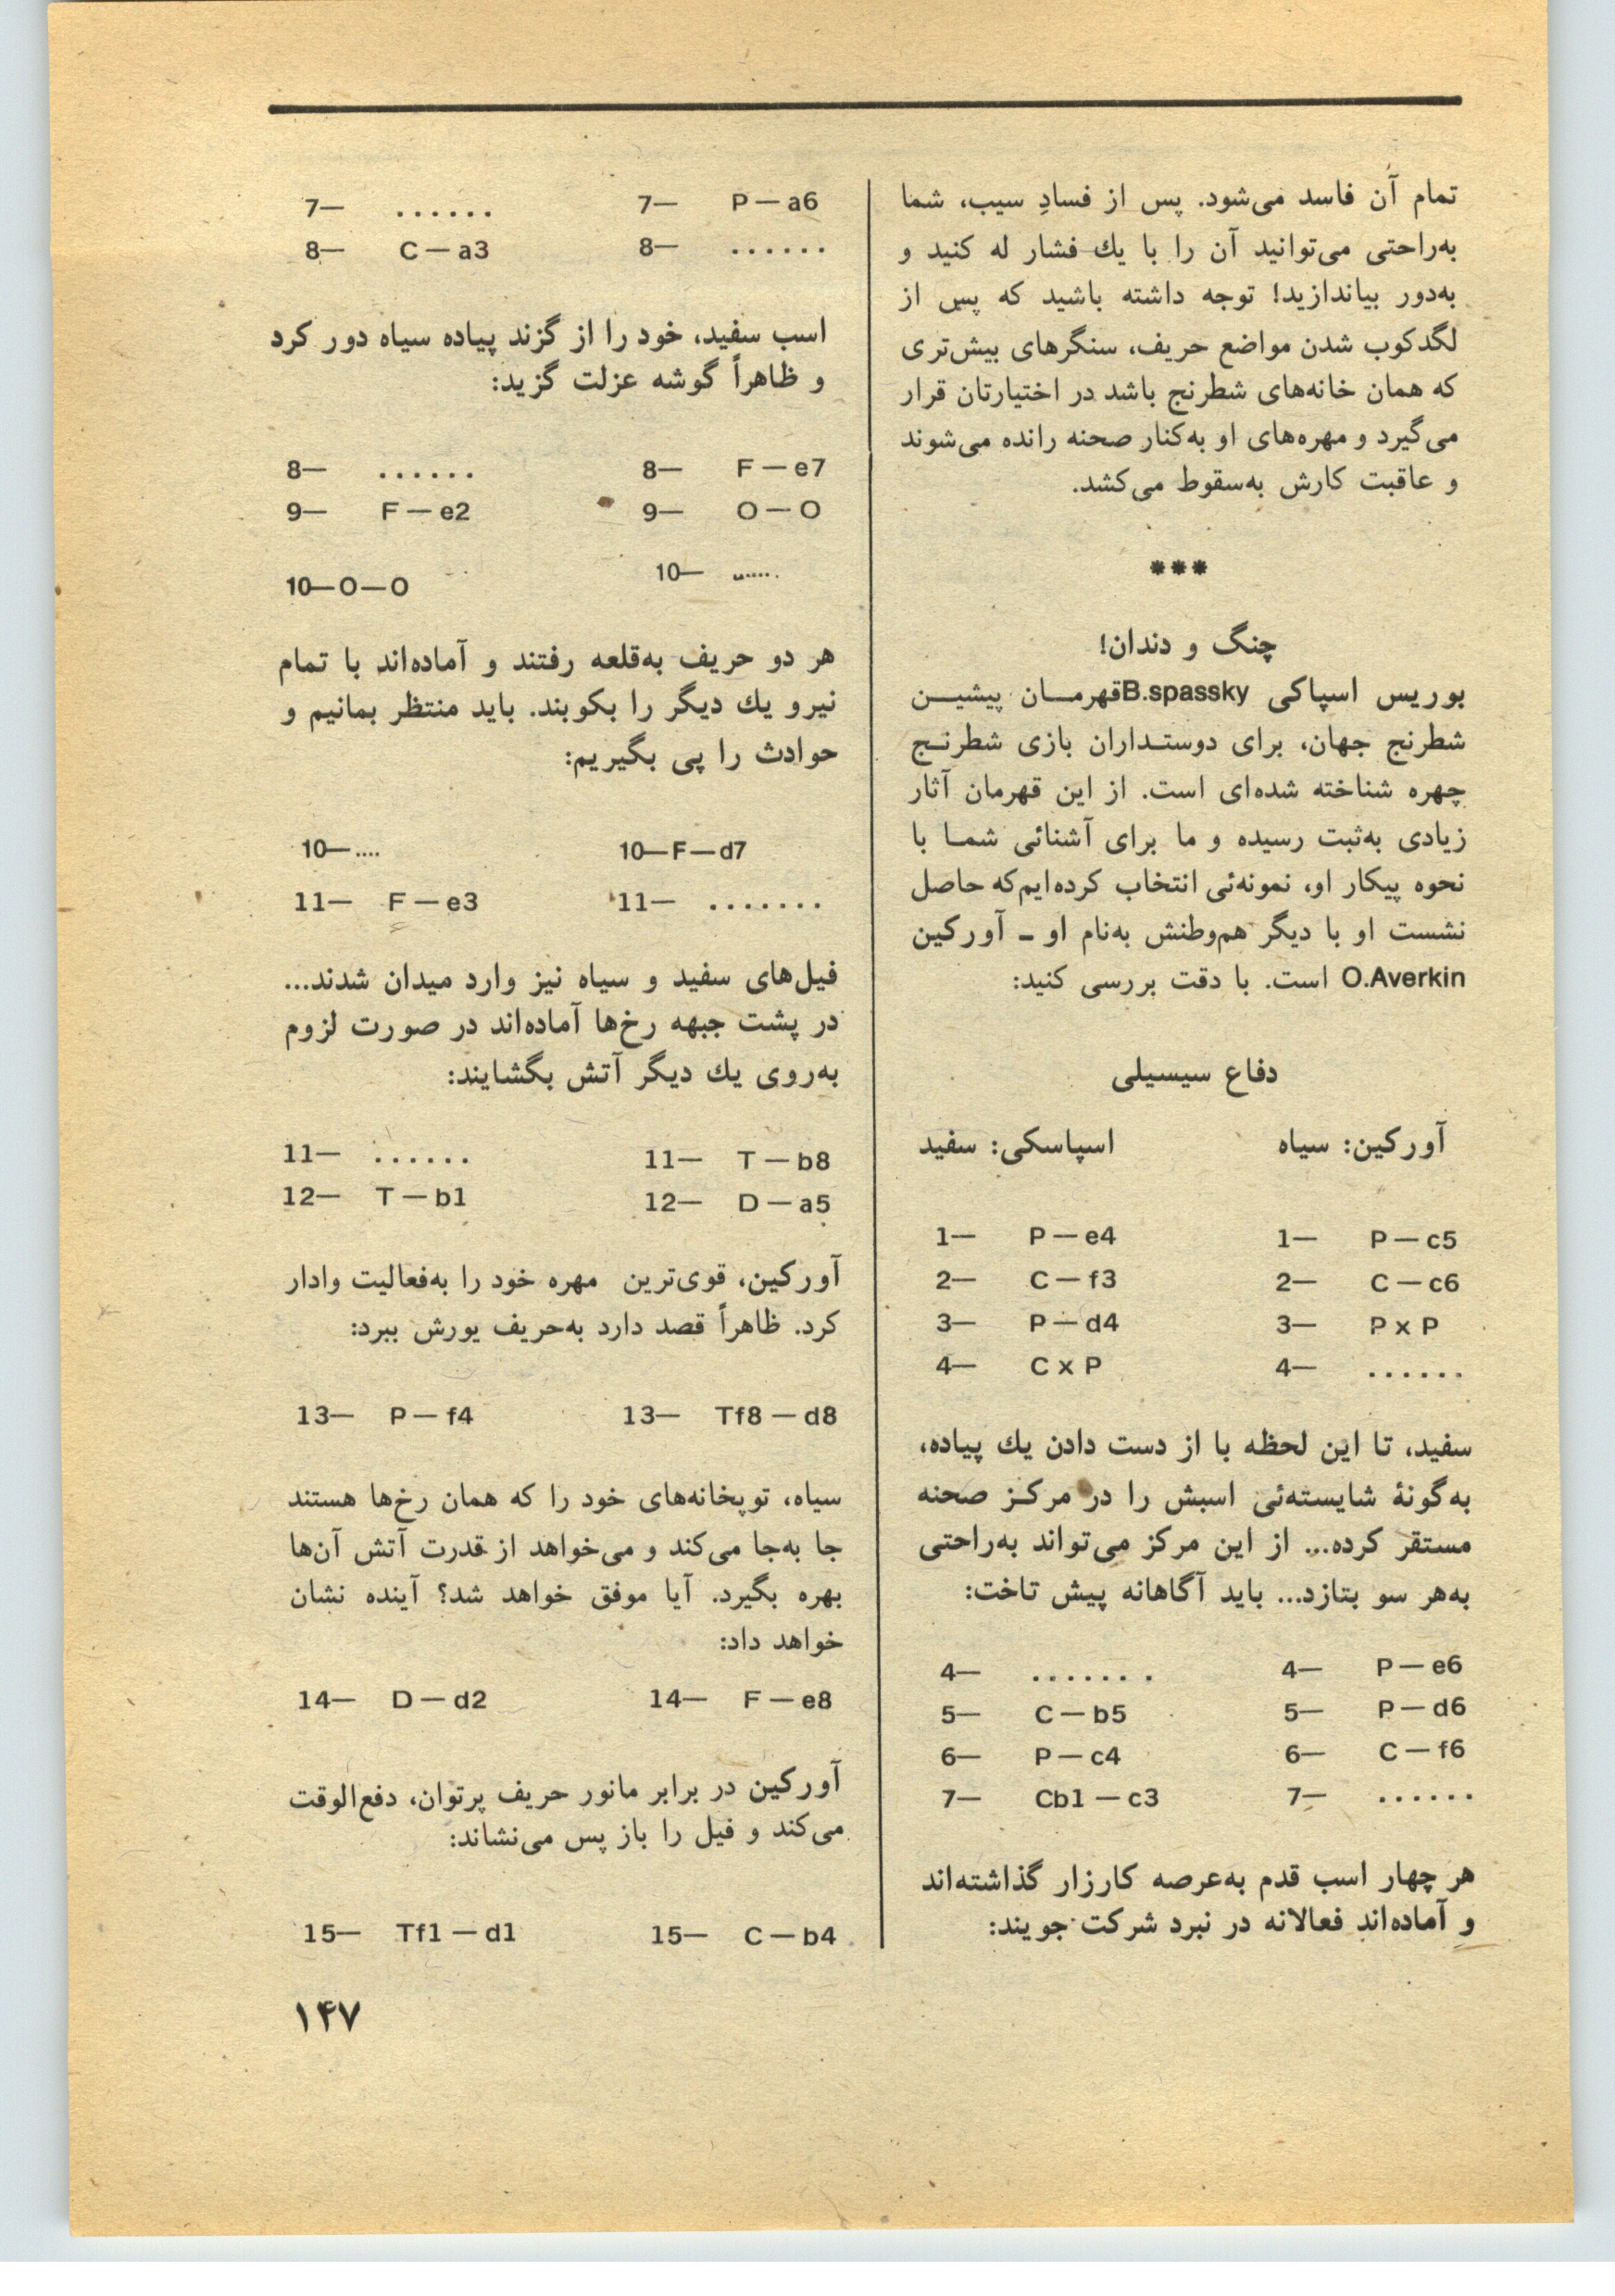 تمام آن فاسد می‌شود. پس از فسادِ سیب، شما
به‌راحتی می‌توانید آن را با یك فشار له کنید و
به‌دور بیاندازید! توجه داشته باشید که پس از
لگدکوب شدن مواضع حریف، سنگرهای بیش‌تری
که همان خانه‌های شطرنج باشد در اختیارتان قرار
می‌گیرد و مهره‌های او به‌کنار صحنه رانده می‌شوند
و عاقبت کارش به‌سقوط می‌کشد.
***
چنگ و دندان!
بوریس اسپاکی B.spasskyقهرمـان پیشیـن
شطرنج جهان، برای دوستـداران بازی شطرنـج
چهره شناخته شده‌ای است. از این قهرمان آثار
زیادی به‌ثبت رسیده و ما برای آشنائی شمـا با
نحوه پیکار او، نمونه‌ئی انتخاب کرده‌ایم‌که حاصل
نشست او با دیگر هم‌وطنش به‌نام او ـ آورکین
O.Averkin است. با دقت بررسی کنید:
دفاع سیسیلی
آورکین: سیاه اسپاسکی: سفید
1— P — e4 1— P — c5
2— C — f3 2— C — c6
3— P — d4 3— P x P
4— C x P 4— ......
سفید، تا این لحظه با از دست دادن یك پیاده،
به‌گونهٔ شایسته‌ئی اسبش را در مرکـز صحنه
مستقر کرده... از این مرکز می‌تواند به‌راحتی
به‌هر سو بتازد... باید آگاهانه پیش تاخت:
4— ....... 4— P — e6
5— C — b5 5— P — d6
6— P — c4 6— C — f6
7— Cb1 — c3 7— ......
هر چهار اسب قدم به‌عرصه کارزار گذاشته‌اند
و آماده‌اند فعالانه در نبرد شرکت جویند:
7— ...... 7— P — a6
8— C — a3 8— ......
اسب سفید، خود را از گزند پیاده سیاه دور کرد
و ظاهراً گوشه عزلت گزید:
8— ...... 8— F — e7
9— F — e2 9— O — O
10—O—O 10— ......
هر دو حریف به‌قلعه رفتند و آماده‌اند با تمام
نیرو یك دیگر را بکوبند. باید منتظر بمانیم و
حوادث را پی بگیریم:
10—.... 10—F—d7
11— F — e3 11— .......
فیل‌های سفید و سیاه نیز وارد میدان شدند...
در پشت جبهه رخ‌ها آماده‌اند در صورت لزوم
به‌روی یك دیگر آتش بگشایند:
11— ...... 11— T — b8
12— T — b1 12— D — a5
آورکین، قوی‌ترین مهره خود را به‌فعالیت وادار
کرد. ظاهراً قصد دارد به‌حریف یورش ببرد:
13— P — f4 13— Tf8 — d8
سیاه، توپخانه‌های خود را که همان رخ‌ها هستند
جا به‌جا می‌کند و می‌خواهد از قدرت آتش آن‌ها
بهره بگیرد. آیا موفق خواهد شد؟ آینده نشان
خواهد داد:
14— D — d2 14— F — e8
آورکین در برابر مانور حریف پرتوان، دفع‌الوقت
می‌کند و فیل را باز پس می‌نشاند:
15— Tf1 — d1 15— C — b4
۱۴۷